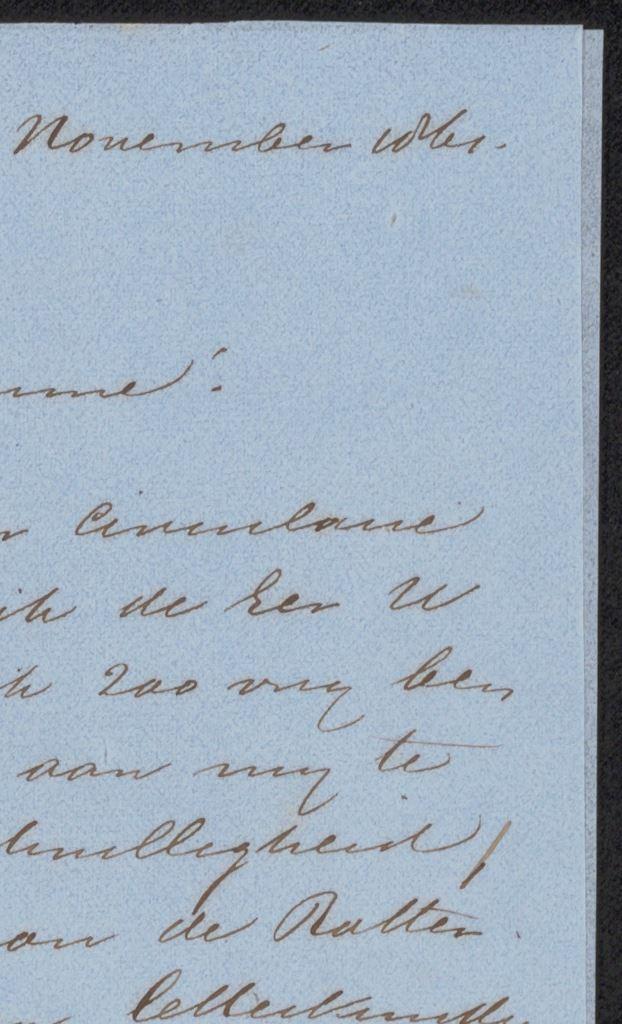 November 1861.
circulaire
ik de Eer U
ik zoo vry ben
aan my te
willigheid /
van de Rotter
letterkundi